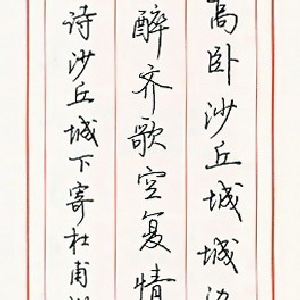 高卧沙丘城城
醉齐歌空复情
诗沙丘城下寄杜甫